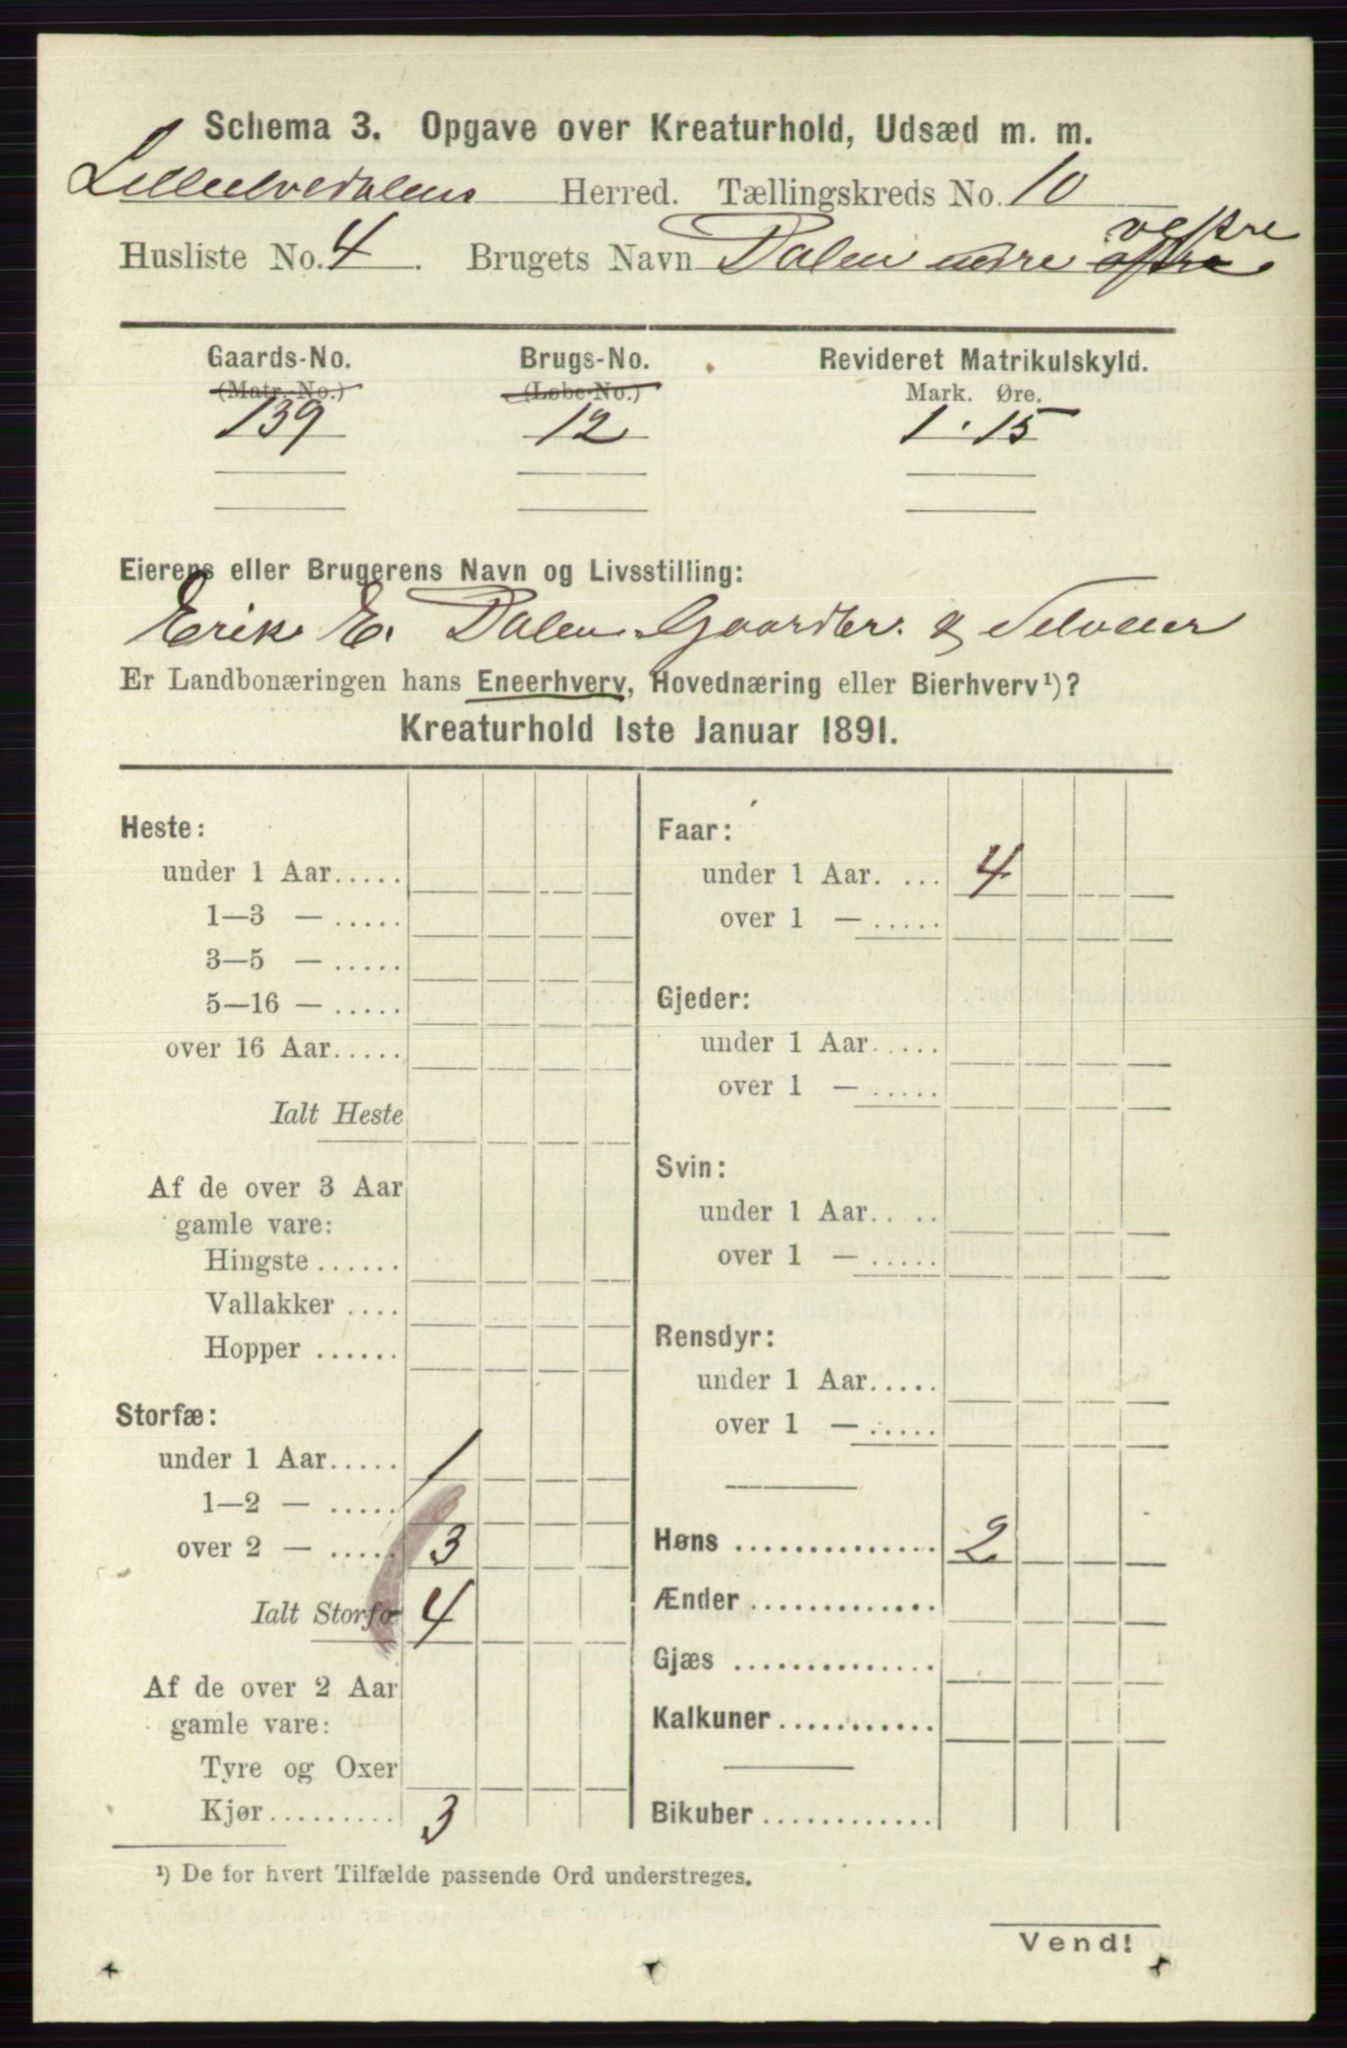 Schema 3. Opgave over Kreaturhold, Udsæd m. m.
Lilleelvedalens Herred. Tællingskreds No. 10
vestre
Husliste No. 4. Brugets Navn Dalen nedre østre
Gaards-No. Brugs-No. Revideret Matrikulskyld.
(Matr.-No.) (Løbe-No.) Mark. Øre.
139 12 1.15
Eierens eller Brugerens Navn og Livsstilling:
Erik E. Dalen Gaardbr. & Selveier
Er Landbonæringen hans Eneerhverv, Hovednæring eller Bierhverv¹)?
Kreaturhold 1ste Januar 1891.
Heste:
under 1 Aar.....
1—3 — .....
3—5 — .....
5—16 — .....
over 16 Aar.....
Ialt Heste
Af de over 3 Aar
gamle vare:
Hingste ......
Vallakker ....
Hopper ......
Storfæ:
under 1 Aar..... 1
1—2 — .....
over 2 — ..... 3
Ialt Storfæ 4
Af de over 2 Aar
gamle vare:
Tyre og Oxer
Kjør......... 3
Faar:
under 1 Aar. ... 4
over 1 — .....
Gjeder:
under 1 Aar.....
over 1 — .....
Svin:
under 1 Aar.. ..
over 1 — .....
Rensdyr:
under 1 Aar.....
over 1 — .....
Høns .............. 2
Ænder .............
Gjæs ..............
Kalkuner...........
Bikuber ............
¹) De for hvert Tilfælde passende Ord understreges.
Vend!